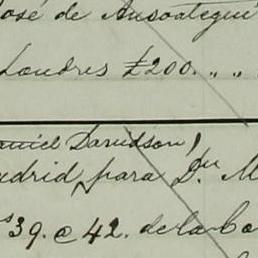 José de Ansoategui
Londres £200. " "
Daniel Davidson)
adrid para Dn M
s 39. @ 42. de la Co